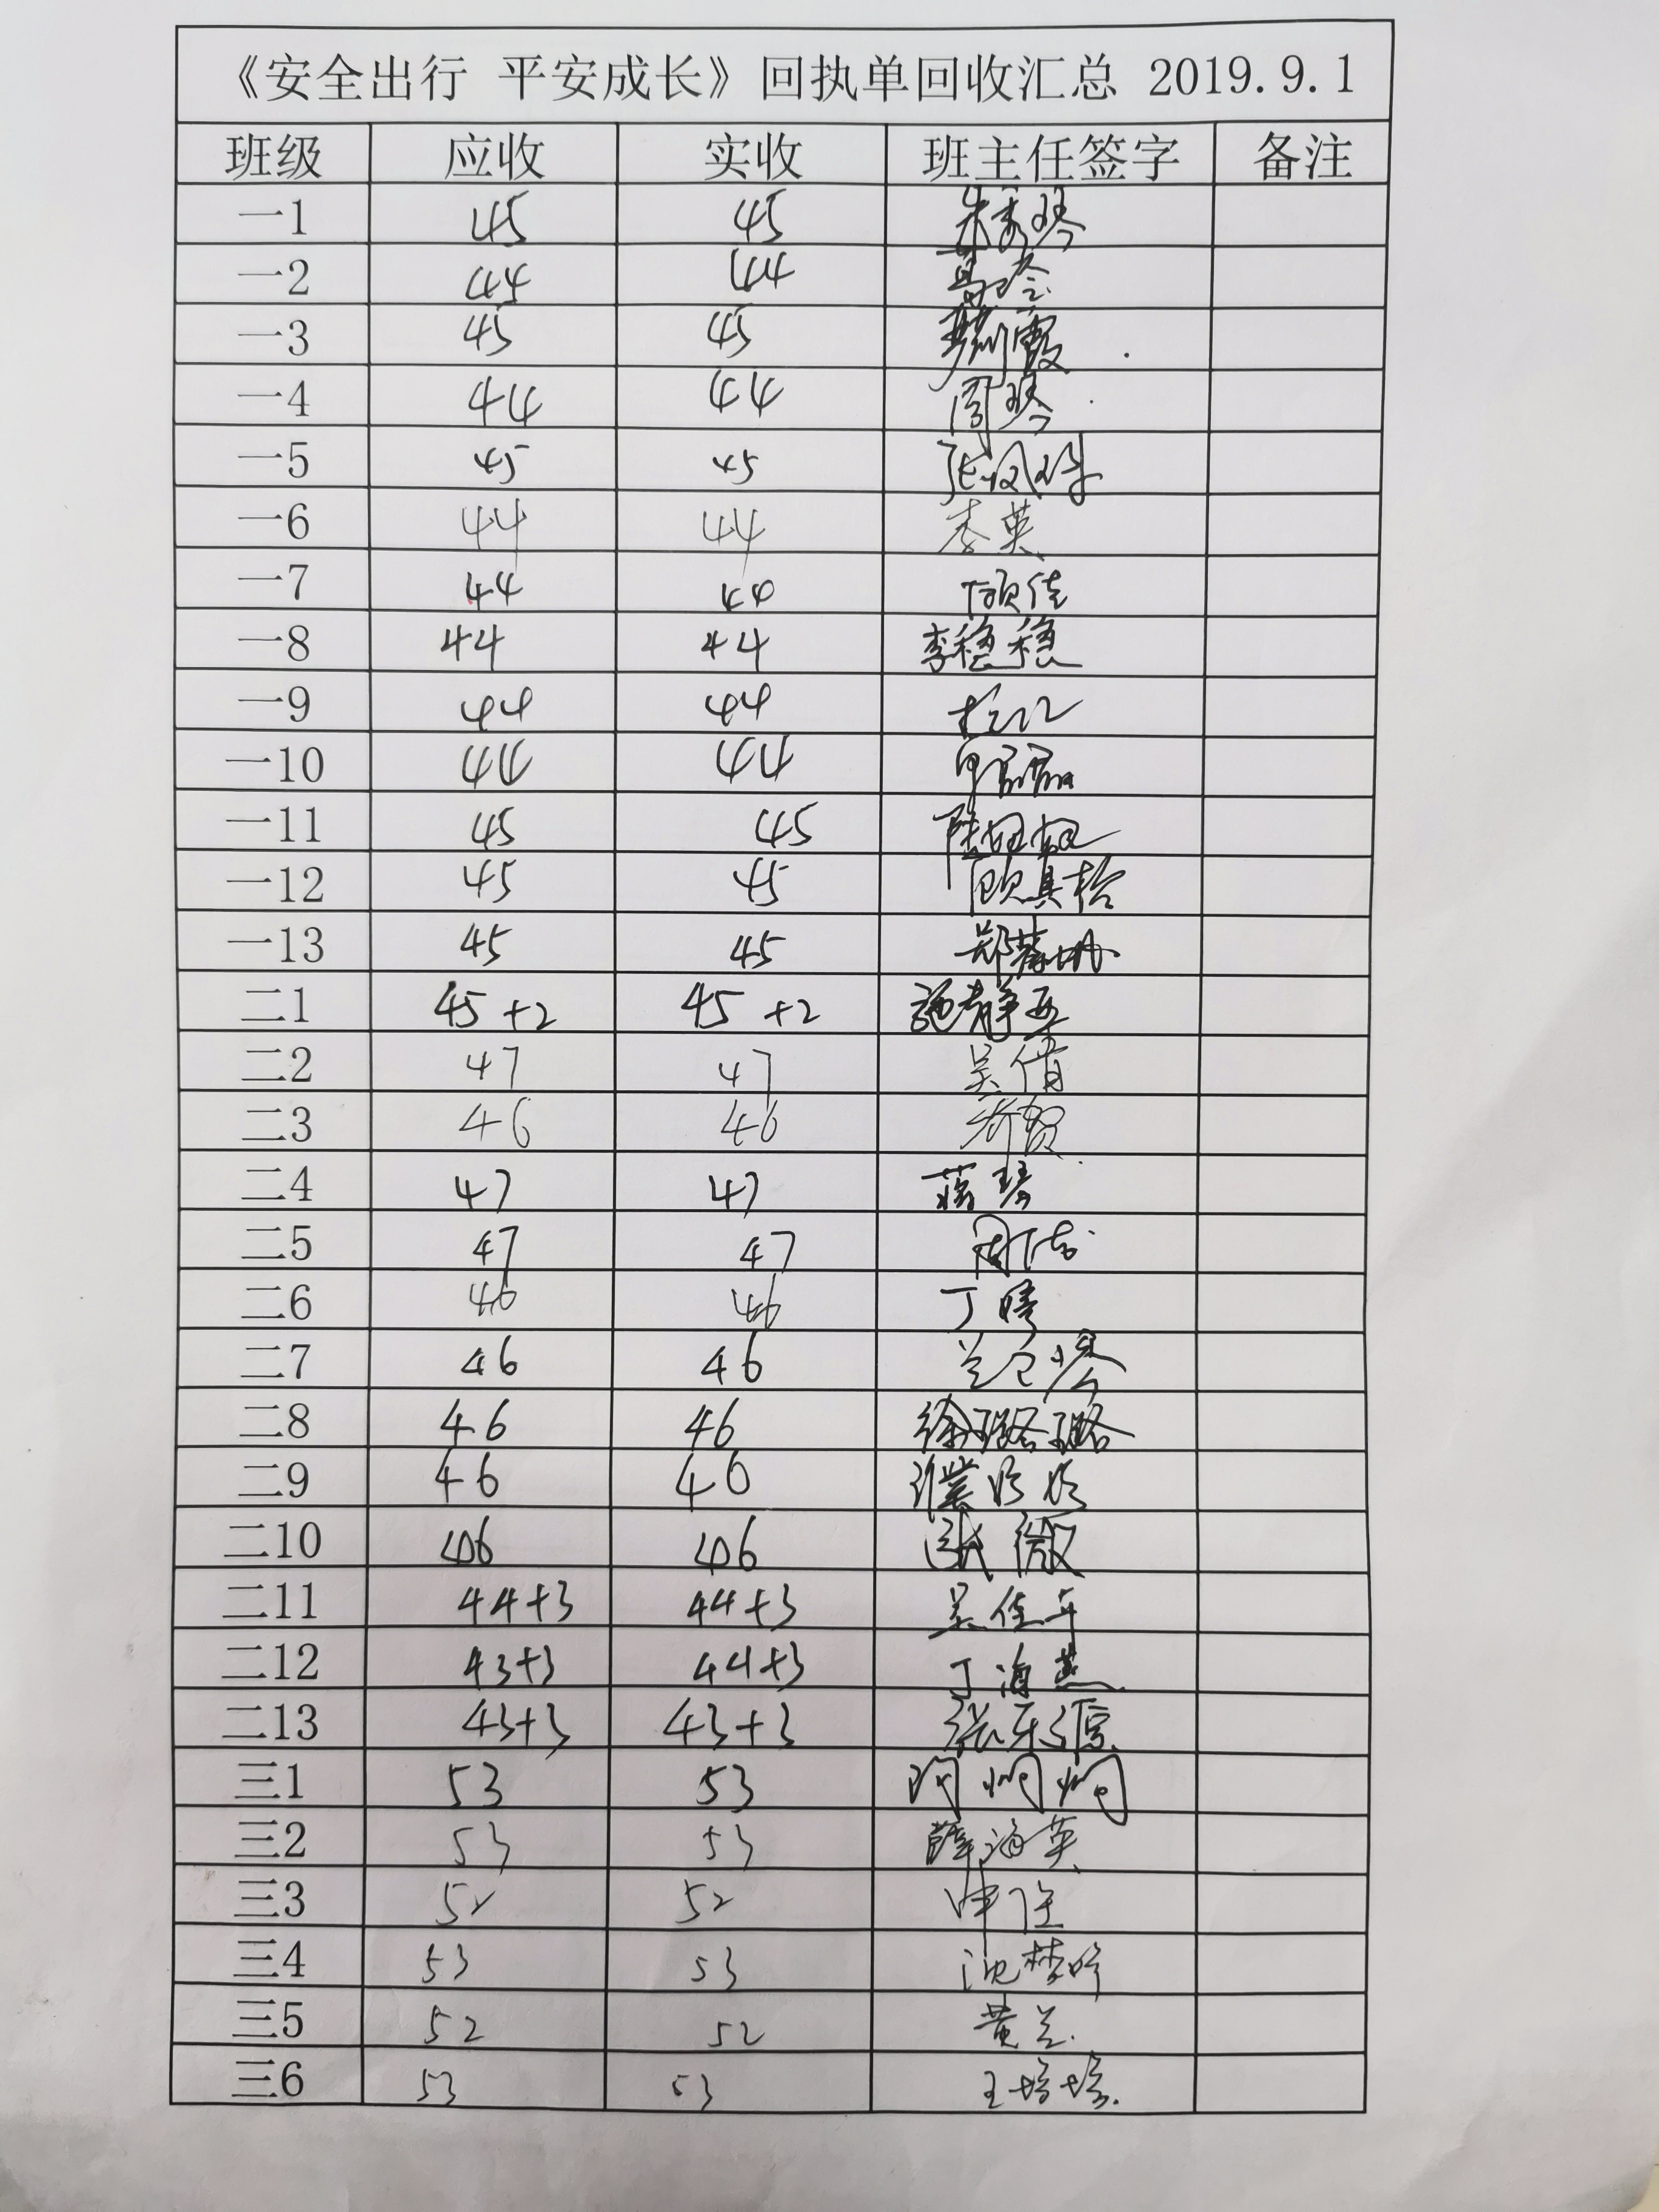 《安全出行 平安成长》回执单回收汇总 2019.9.1
班级 应收 实收 班主任签字 备注
一1 45 45 朱秀琴
一2 44 44
一3 45 45 霞
一4 44 44 周琴
一5 45 45 张凤
一6 44 44 李英
一7 44 44 佳
一8 44 44 李稳稳
一9 44 44
一10 44 44
一11 45 45 陆
一12 45 45 顾其
一13 45 45 郑
二1 45+2 45+2 施静亚
二2 47 47 吴倩
二3 46 46
二4 47 47 蒋琴
二5 47 47 周
二6 46 46 丁晴
二7 46 46
二8 46 46 徐璐璐
二9 46 46 濮
二10 46 46 张微
二11 44+3 44+3 吴佳
二12 43+3 44+3 丁海燕
二13 43+3 43+3 张
三1 53 53
三2 53 53 薛海英
三3 52 52
三4 53 53 沈梦吟
三5 52 52 黄兰
三6 53 53 王培培